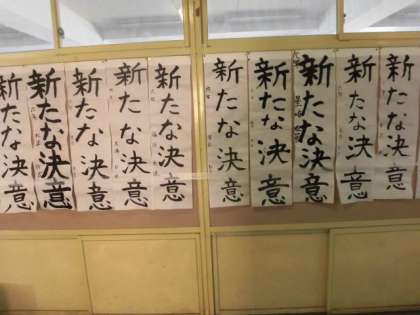 新たな決意
新たな決意
新たな決意
新たな決意
新たな決意
新たな決意
新たな決意
新たな決意
新たな決意
新たな決意